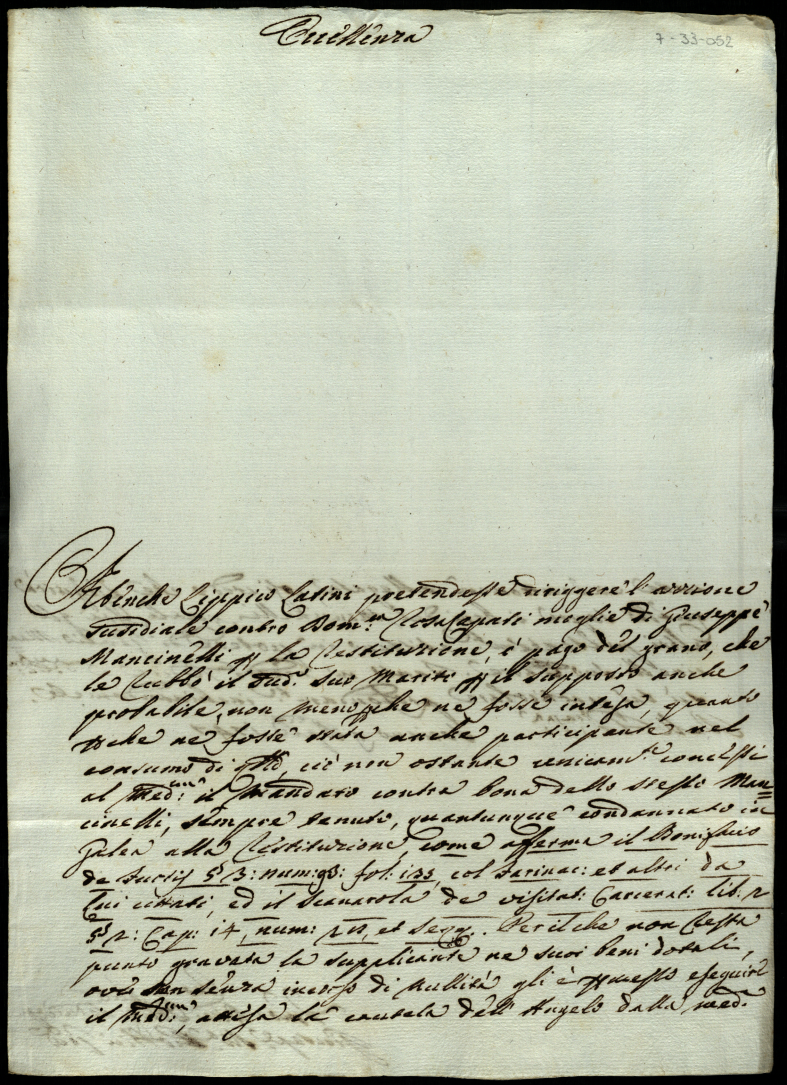 Eccellenza
7-33-052
Abbenche Lippico Latini pretendesse diriggere l'azzione
Giudiziale contro Dom.ca Rosa Capati moglie di Giuseppe
Mancinelli p la restituzione, e pago del grano, che
le rubbò il sud.o suo Marito p il supposto anche
probabile, non meno p che ne fosse intesa, quanto
p che ne fosse stata anche participante nel
consumo di ciò non ostante unicam.e concessi
al med.mo il Mandato contra bona dello stesso Man=
cinelli, sempre tenuto, quantunque condannato in
Galea alla restituzione come afferma il Bonifacio
de Furtis § 3: num: 93: fol: 133 col Farinac: et altri da
lui citati, ed il Scanarola de visitat: Carcerat: lib: 2
§ 2: Cap: 14, num: et seqq. Perilche non resta
punto gravata la supplicante ne suoi beni dotali,
ove senza incorso di nullità gli è p messo eseguire
il Med.mo, attesa la cautela dell'Angelo dalla med.a